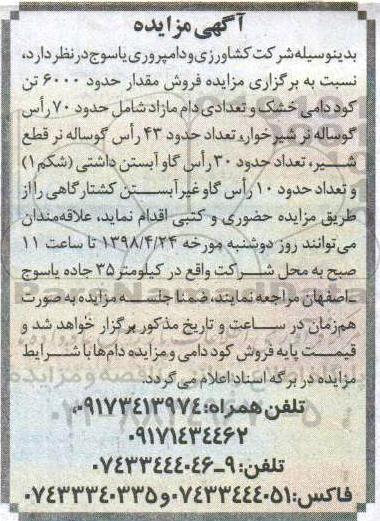 آگهی مزایده
بدینوسیله شرکت کشاورزی و دامپروری یاسوج در نظر دارد،
نسبت به برگزاری مزایده فروش مقدار حدود ۶۰۰۰ تن
کود دامی خشک و تعدادی دام مازاد شامل حدود ۷۰ رأس
گوساله نر شیرخوار، تعداد حدود ۴۳ رأس گوساله نر قطع
شیر، تعداد حدود ۳۰ رأس گاو آبستن داشتی (شکم ۱)
و تعداد حدود ۱۰ رأس گاو غیر آبستن کشتارگاهی را از
طریق مزایده حضوری و کتبی اقدام نماید، علاقه‌مندان
می‌توانند روز دوشنبه مورخه ۱۳۹۸/۴/۲۴ تا ساعت ۱۱
صبح به محل شرکت واقع در کیلومتر ۳۵ جاده یاسوج
ـ اصفهان مراجعه نمایند، ضمنا جلسه مزایده به صورت
هم‌زمان در ساعت و تاریخ مذکور برگزار خواهد شد و
قیمت پایه فروش کود دامی و مزایده دام‌ها با شرایط
مزایده در برگه اسناد اعلام می گردد.
تلفن همراه: ۰۹۱۷۳۴۱۳۹۷۴
۰۹۱۷۱۴۳۴۴۶۲
تلفن: ۹-۰۷۴۳۳۴۴۴۰۴۶
فاکس: ۰۷۴۳۳۴۴۴۰۵۱ و ۰۷۴۳۳۳۴۰۳۳۵
ParsNamadData